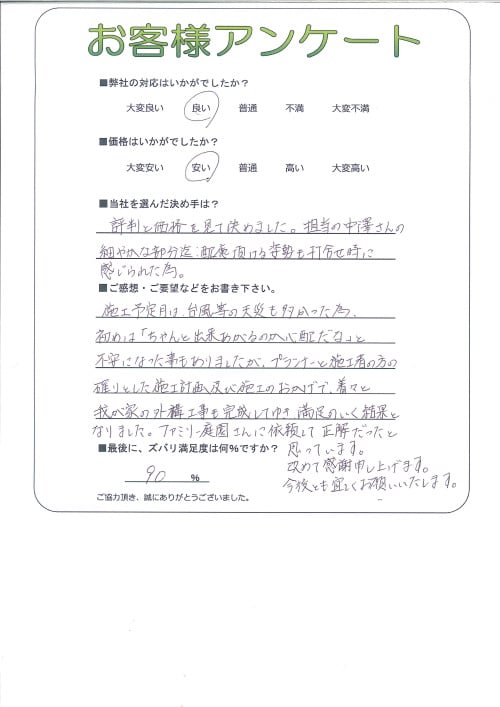 お客様アンケート
■弊社の対応はいかがでしたか？
大変良い 良い 普通 不満 大変不満
■価格はいかがでしたか？
大変安い 安い 普通 高い 大変高い
■当社を選んだ決め手は？
評判と価格を見て決めました。担当の中澤さんの
細やかな部分迄配慮頂ける姿勢も打合せ時に
感じられた為。
■ご感想・ご要望などをお書き下さい。
施工予定月は、台風等の天災も多かった為、
初めは「ちゃんと出来あがるのか心配だな」と
不安になった事もありましたが、プランナーと施工者の方の
確りとした施工計画及び施工のおかげで、着々と
我が家の外構工事も完成してゆき満足のいく結果と
なりました。ファミリー庭園さんに依頼して正解だったと
思っています。
改めて感謝申し上げます。
今後とも宜しくお願いいたします。
■最後に、ズバリ満足度は何％ですか？
90 ％
ご協力頂き、誠にありがとうございました。